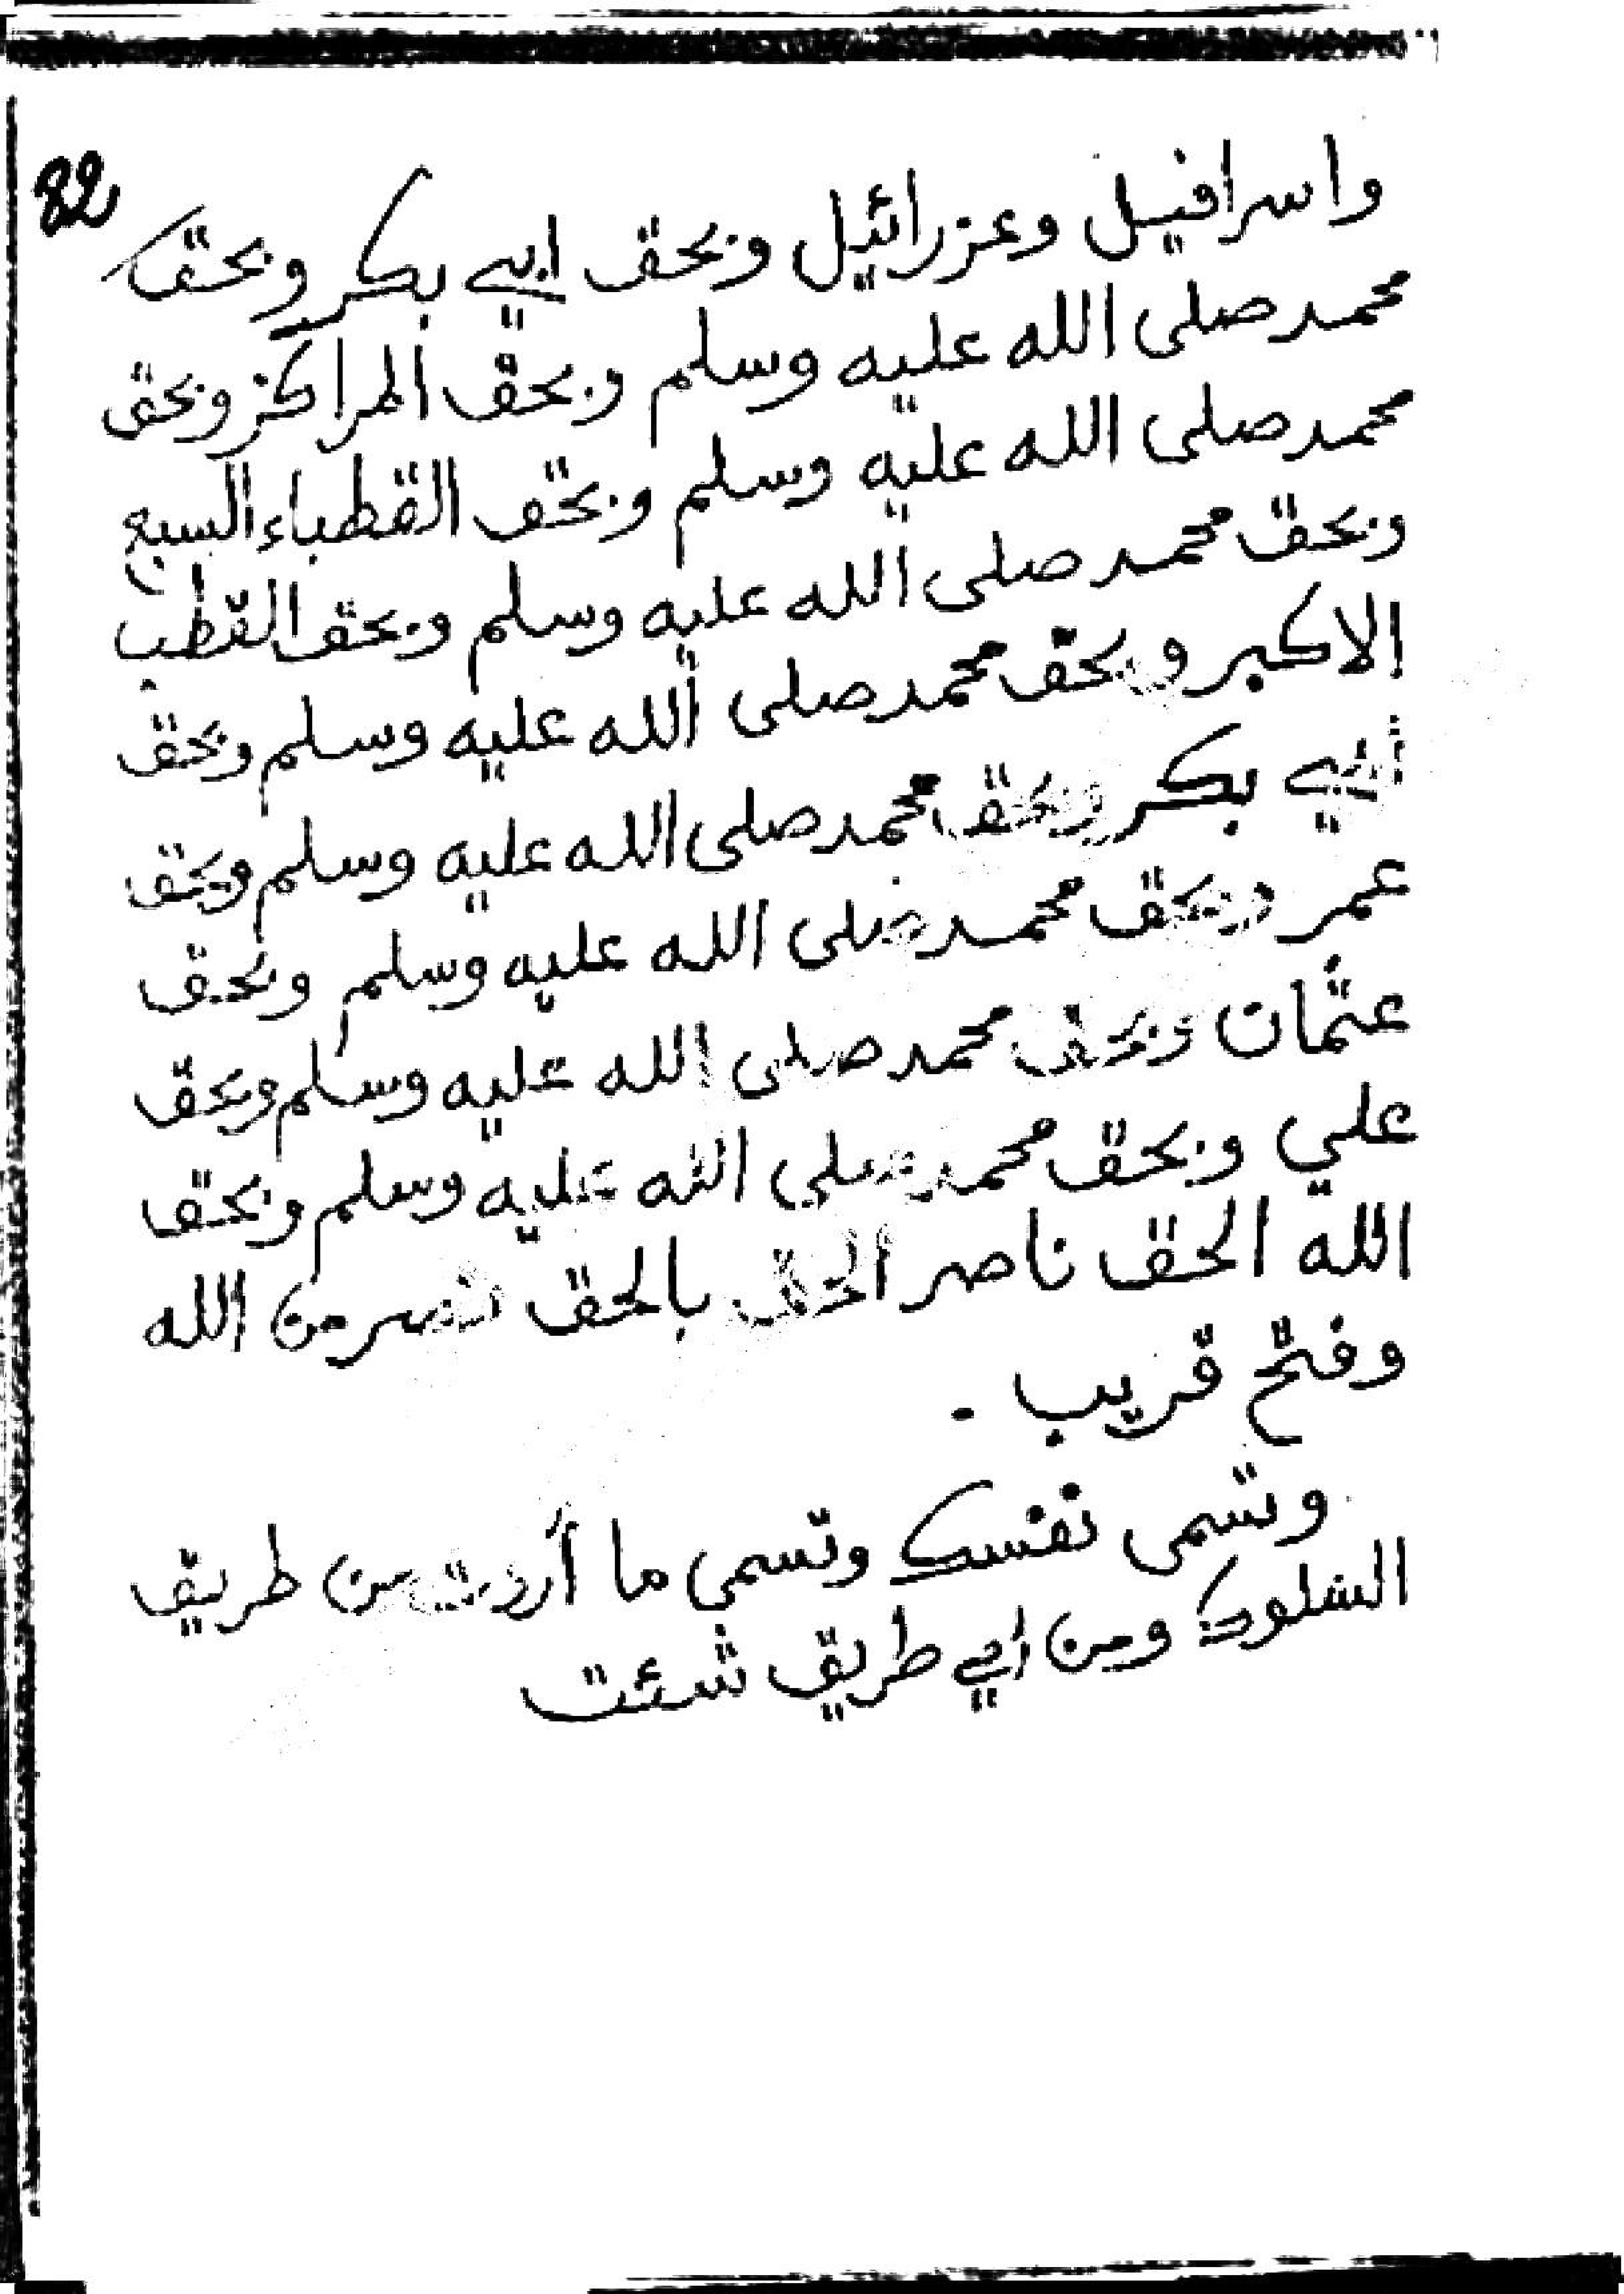 82
واسرافيل وعزرائيل وبحق ابي بكر وبحق
محمد صلى الله عليه وسلم وبحق المراكز وبحق
محمد صلى الله عليه وسلم وبحق القطباء السبع
وبحق محمد صلى الله عليه وسلم وبحق القطب
الاكبر وبحق محمد صلى الله عليه وسلم وبحق
أبي بكر وبحق محمد صلى الله عليه وسلم وبحق
عمر وبحق محمد صلى الله عليه وسلم وبحق
عثمان وبحق محمد صلى الله عليه وسلم وبحق
علي وبحق محمد صلى الله عليه وسلم وبحق
الله الحق ناصر الحق بالحق نصر من الله
وفتح قريب .
وتسمى نفسك وتسمي ما أردت من طريق
السلوك ومن اي طريق شئت